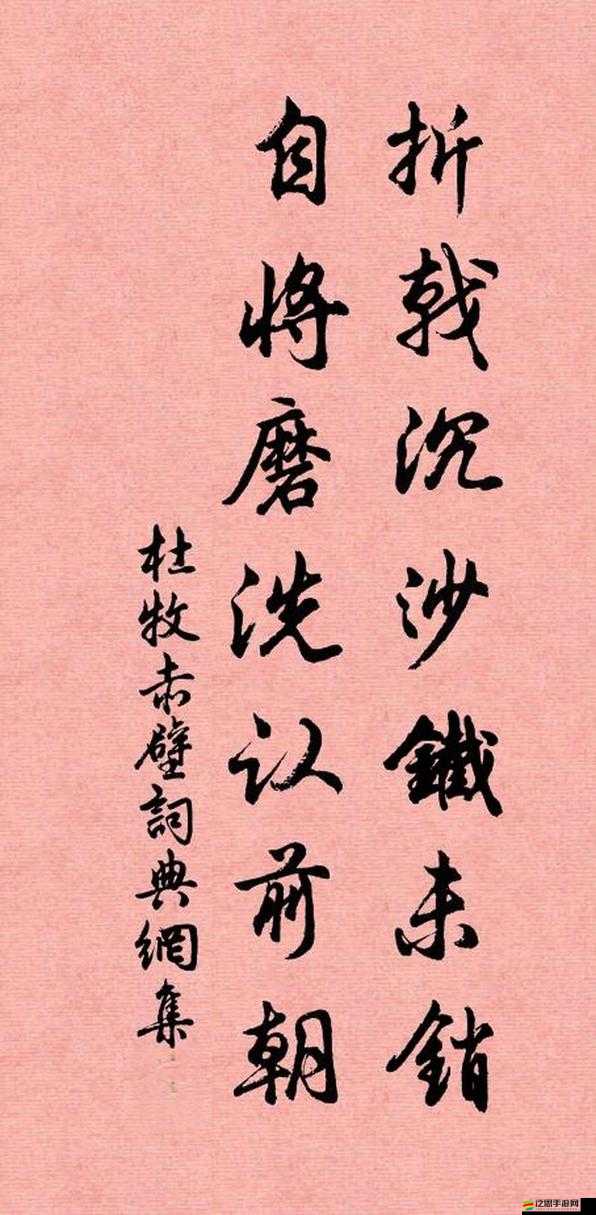 折戟沉沙鐵未銷
自将磨洗认前朝
杜牧赤壁詞典網集
泛思手游网